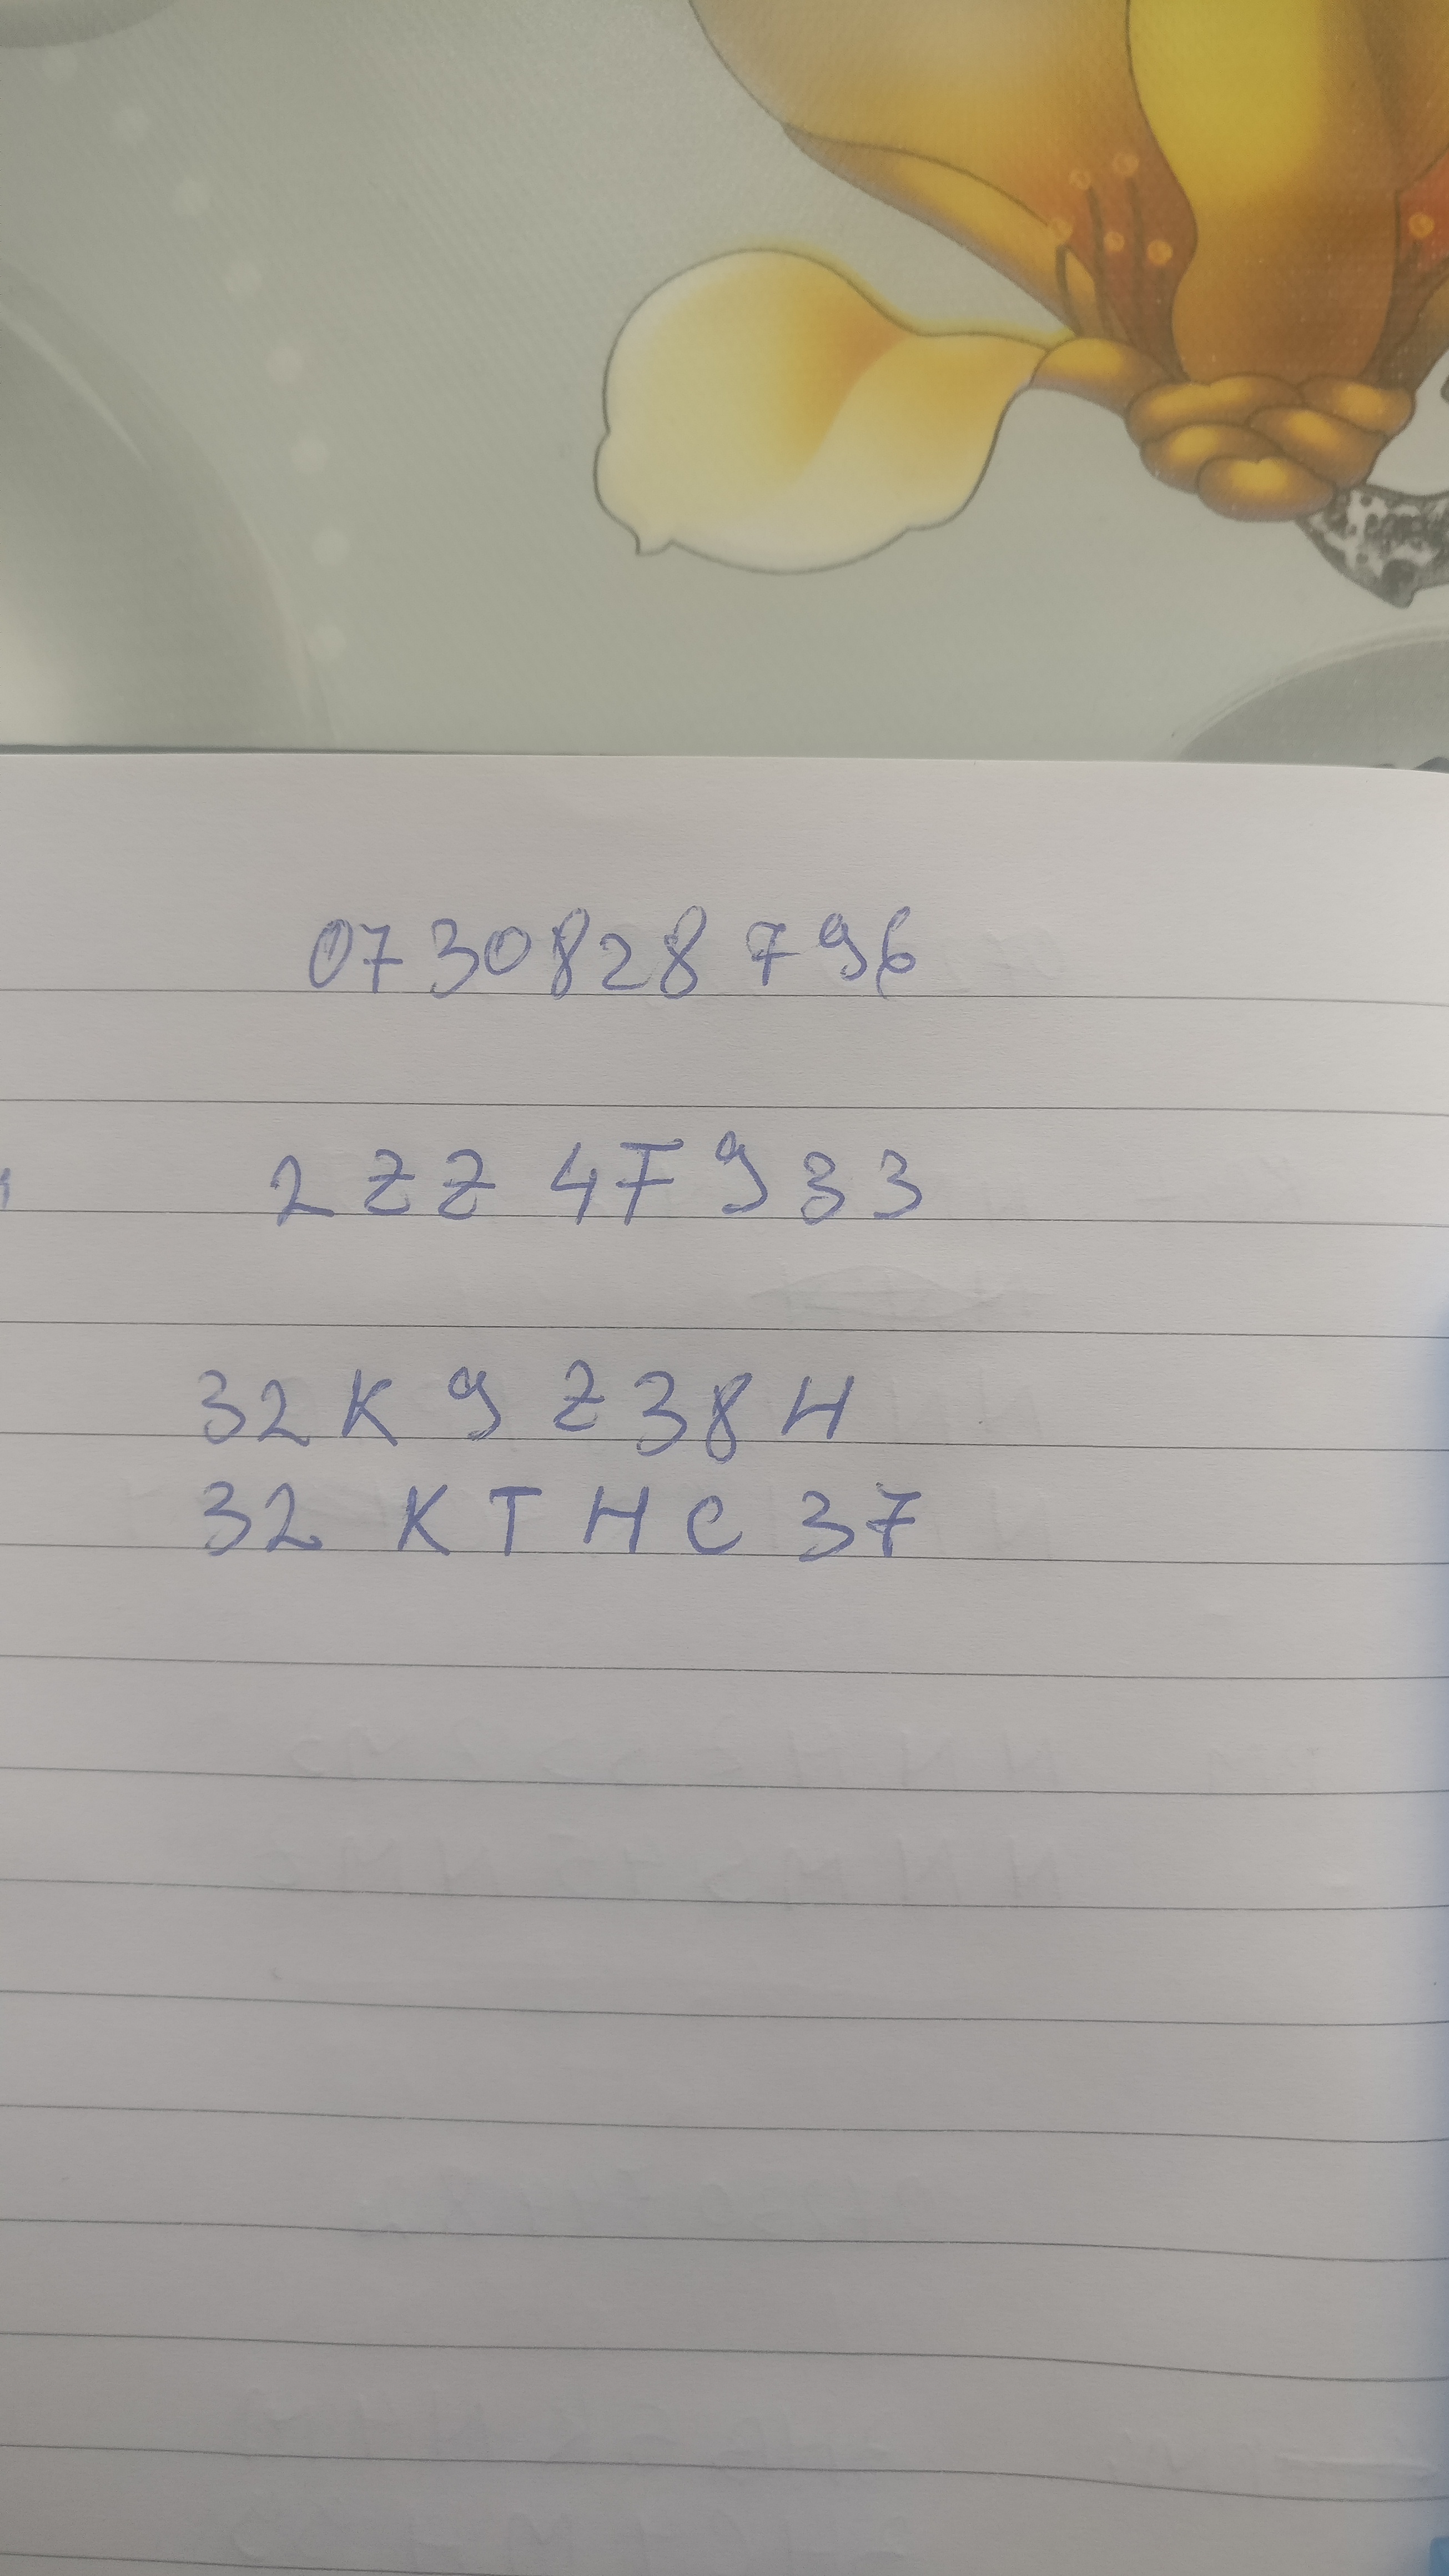 0730828796
2 Z Z 4F 9 3 3
32 K 9 Z 38 H
32 K T H C 37